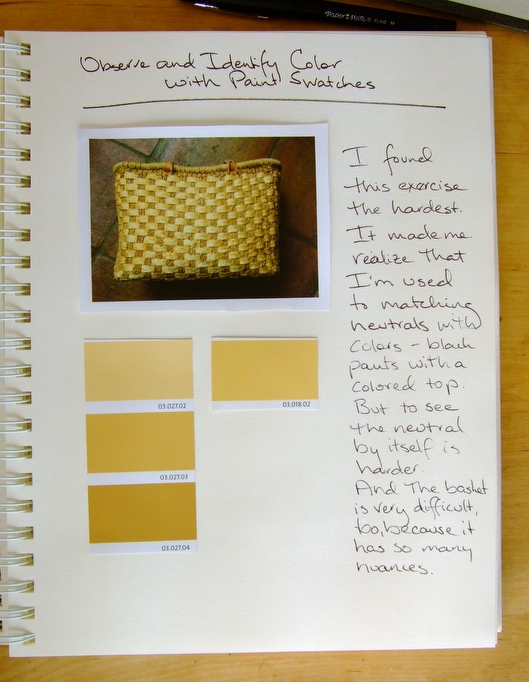 Paper Mate
Observe and Identify Color
with Paint Swatches
I found
this exercise
the hardest.
It made me
realize that
I'm used
to matching
neutrals with
colors - black
pants with a
colored top.
But to see
the neutral
by itself is
harder.
And The basket
is very difficult,
too, because it
has so many
nuances.
03.027.02
03.018.02
03.027.03
03.027.04